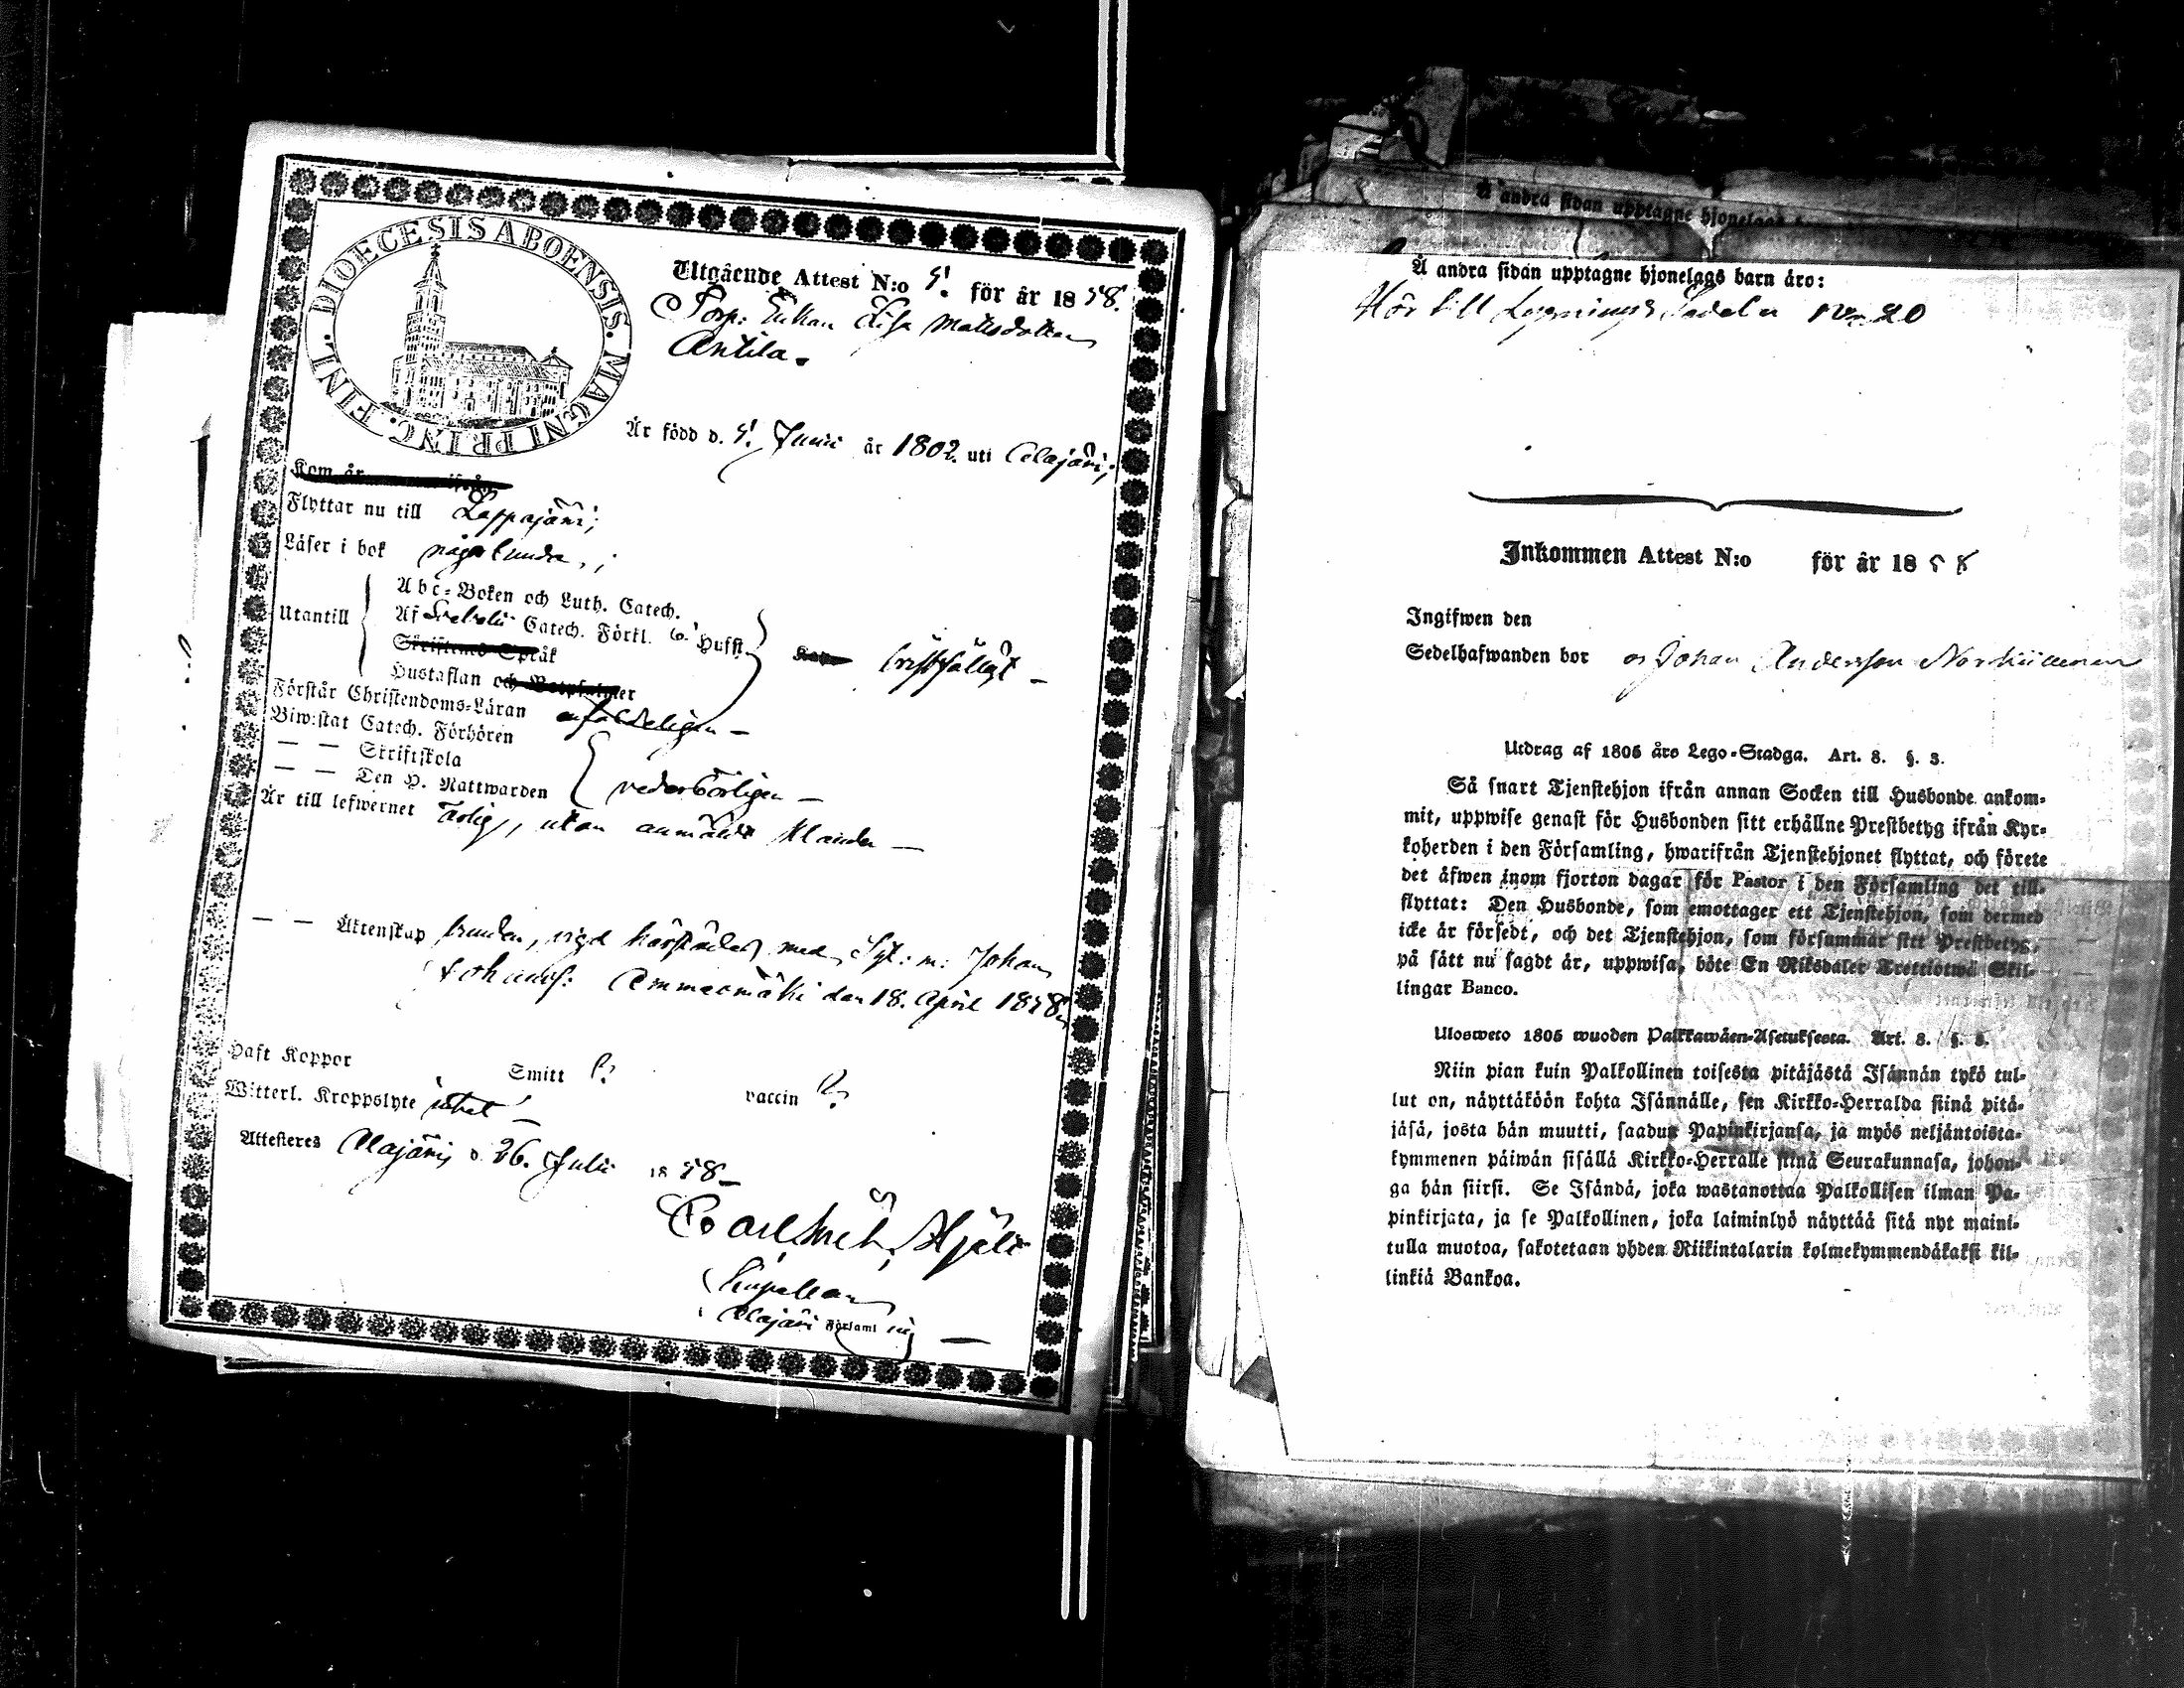 DIOECESIS ABOENSIS. MAGNI PRINC. FINL.
Utgående Attest N:o 5! för år 1858.
Torp: Enkan Lisa Mattsdotter
Antila.
Är född d. 5! Junii år 1802. uti Alajärvi;
Kom år ifrån
Flyttar nu till Lappajärvi;
Läser i bok någorlunda,;
Utantill
Abc-Boken och Luth. Catech.
Af Svebelii Catech. Förkl. o. Husft.
Skriftenes Språk
Hustaflan och Botpsalmer
bristfälligt —
Förstår Christendoms-Läran enfaldeligen —
Biwistat Catech. Förhören
— — Skriftskola
— — Den H. Nattwarden
vederbörligen —
Är till lefwernet ärlig, utan anmäldt klander —
— — Äktenskap bunden, vigd härstädes med Johan
Johanss: Ammesmäki den 18. April 1858.
Haft Koppor Smitt ?. vaccin ?.
Witterl. Kroppslyte intet —
Attesteres Alajärvi d. 26. Julii 1858 —
Hjelt
Kapellan
Alajärvi Församling —
Å andra sidan upptagne hjonelags
Å andra sidan upptagne hjonelags barn äro:
Hör till Lysnings Sedeln No 20
Inkommen Attest N:o för år 1858
Ingifwen den
Sedelhafwanden bor Johan Andersson
Utdrag af 1805 års Lego-Stadga. Art. 8. §. 3.
Så snart Tjenstehjon ifrån annan Socken till Husbonde ankom-
mit, uppwise genast för Husbonden sitt erhållne Prestbetyg ifrån Kyr-
koherden i den Församling, hwarifrån Tjenstehjonet flyttat, och förete
det äfwen inom fjorton dagar för Pastor i den Församling det till-
flyttat: Den Husbonde, som emottager ett Tjenstehjon, som dermed
icke är försedt, och det Tjenstehjon, som försummar sitt Prestbetyg,
på sätt nu sagdt är, uppwisa, böte En Riksdaler Trettiotwå Skil-
lingar Banco.
Ulosweto 1805 wuoden Palkkawäen-Asetuksesta. Art. 8. §. 3.
Niin pian kuin Palkollinen toisesta pitäjästä Isännän tykö tul-
lut on, näyttäköön kohta Isännälle, sen Kirkko-Herralda siinä pitä-
jäsä, josta hän muutti, saadun Papinkirjansa, ja myös neljäntoista-
kymmenen päiwän sisällä Kirkko-Herralle siinä Seurakunnasa, johon-
ga hän siirsi. Se Isändä, joka wastanottaa Palkollisen ilman Pa-
pinkirjata, ja se Palkollinen, joka laiminlyö näyttää sitä nyt maini-
tulla muotoa, sakotetaan yhden Riikintalarin kolmekymmendäkaksi kil-
linkiä Bankoa.